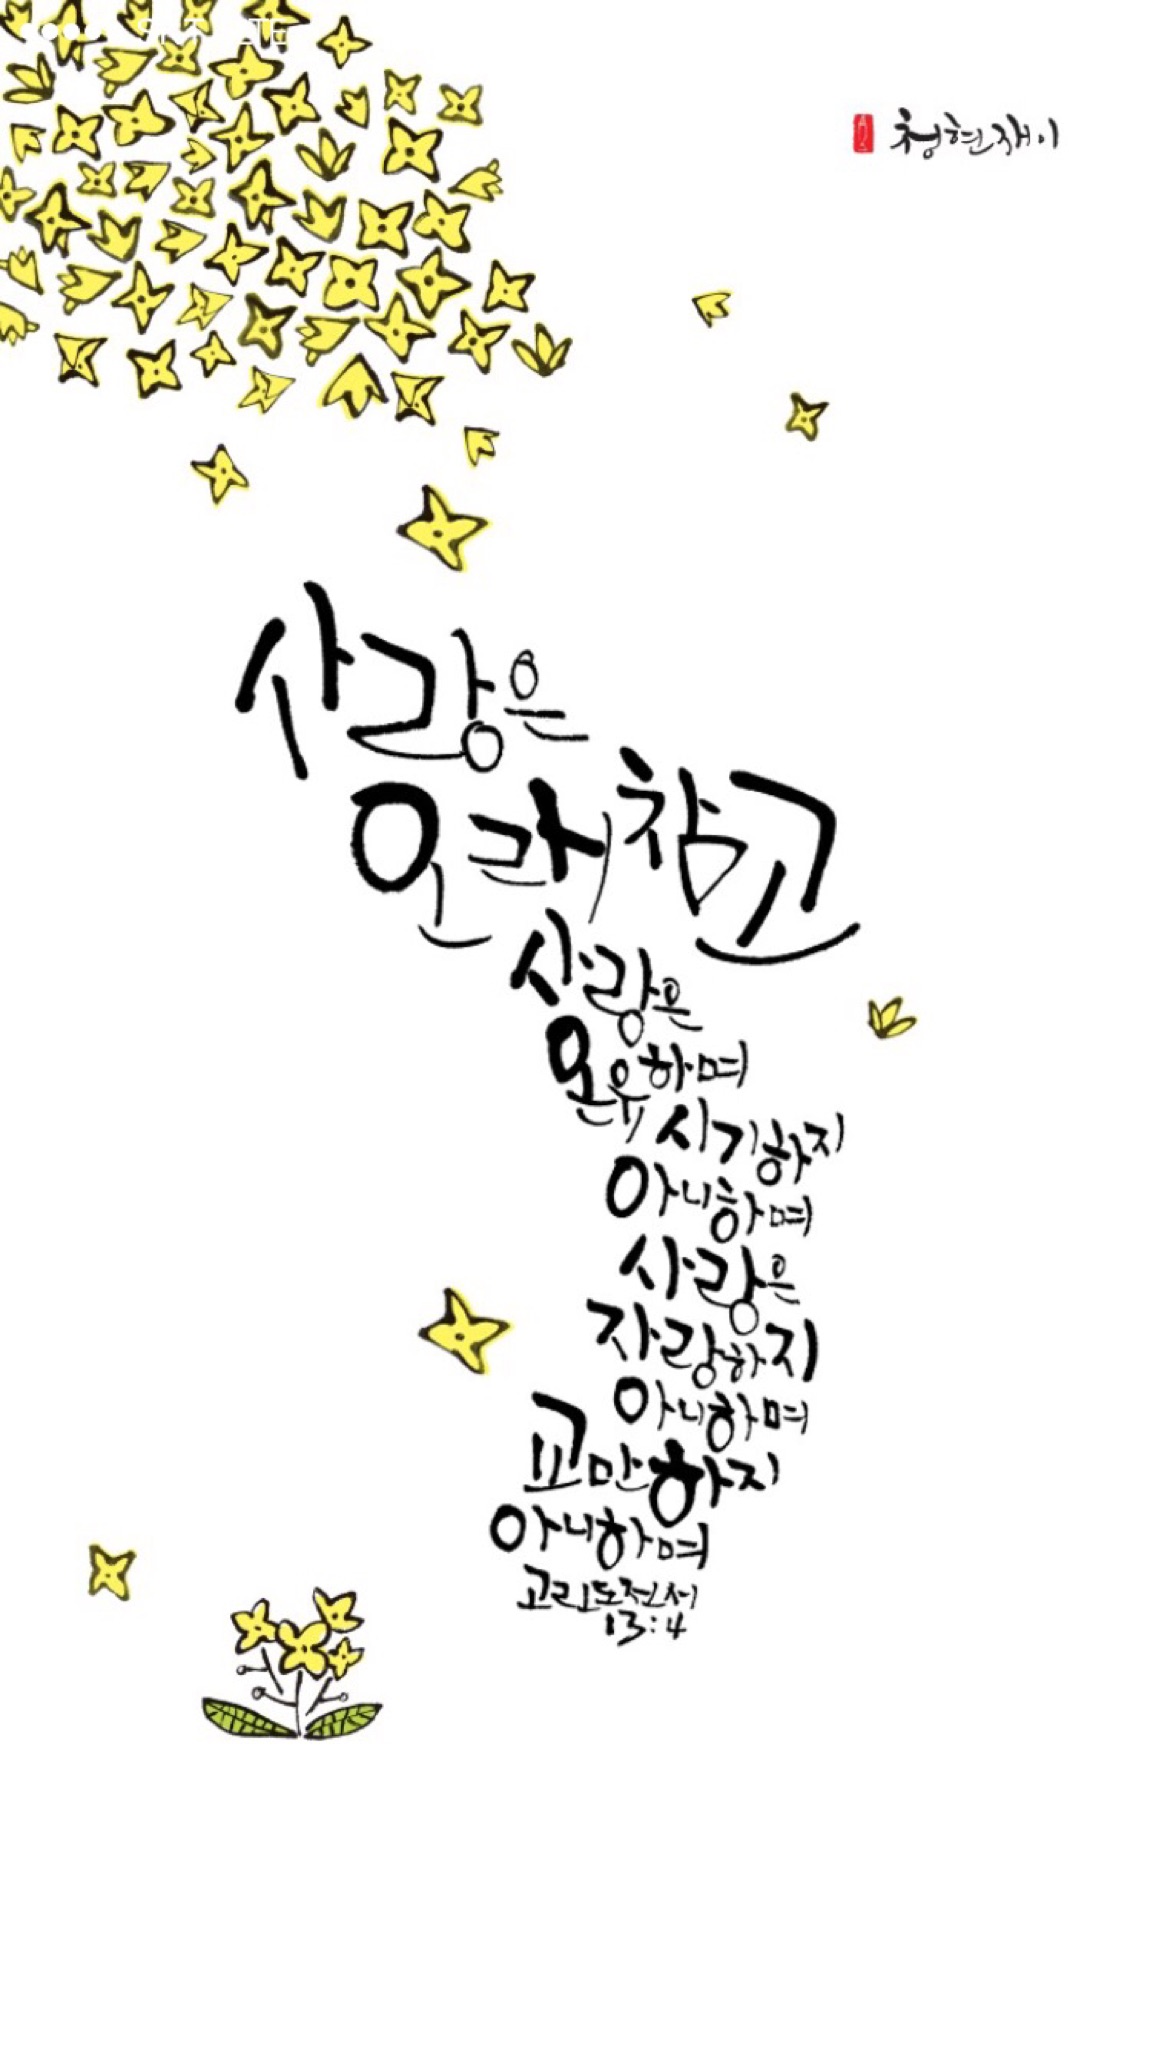 청현재이
사랑은
오래 참고
사랑은
온유하며
시기하지
아니하며
사랑은
자랑하지
아니하며
교만하지
아니하며
고린도전서
13:4